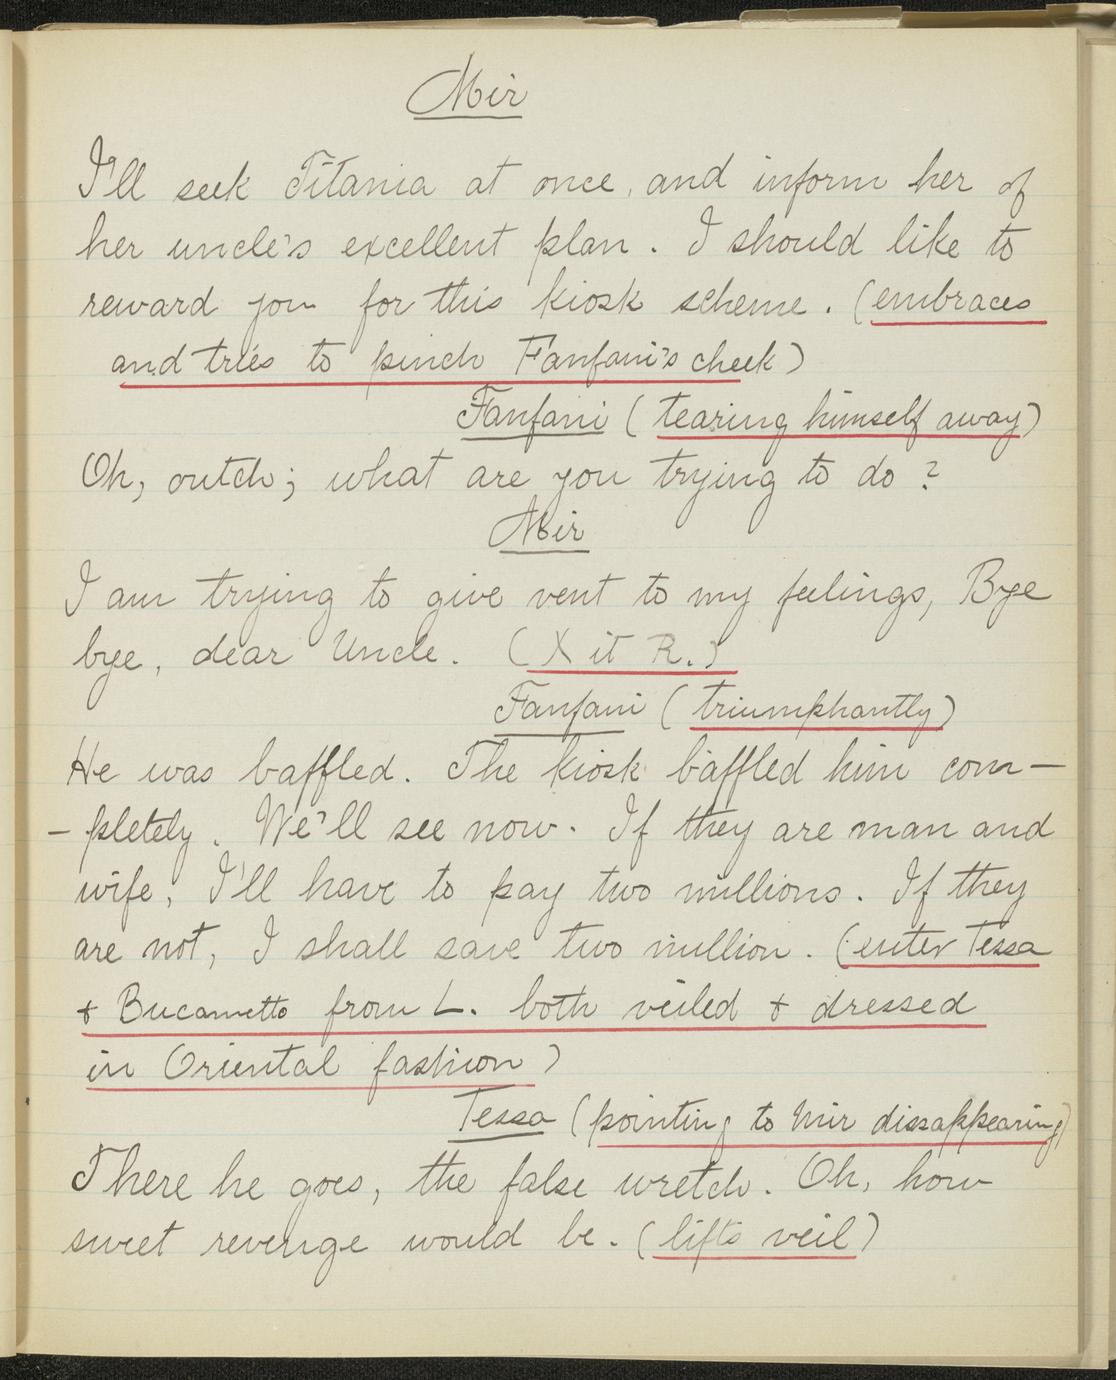 Mir
I'll seek Titania at once, and inform her of
her uncle's excellent plan. I should like to
reward you for this kiosk scheme. (embraces
and tries to pinch Fanfani's cheek)
Fanfani (tearing himself away)
Oh, outch; what are you trying to do?
Mir
I am trying to give vent to my feelings, Bye
bye, dear Uncle. (X it R.)
Fanfani (triumphantly)
He was baffled. The kiosk baffled him com-
-pletely. We'll see now. If they are man and
wife, I'll have to pay two millions. If they
are not, I shall save two million. (enter Tessa
& Bucametto from L. both veiled & dressed
in Oriental fashion)
Tessa (pointing to Mir dissappearing)
There he goes, the false wretch. Oh, how
sweet revenge would be. (lifts veil)